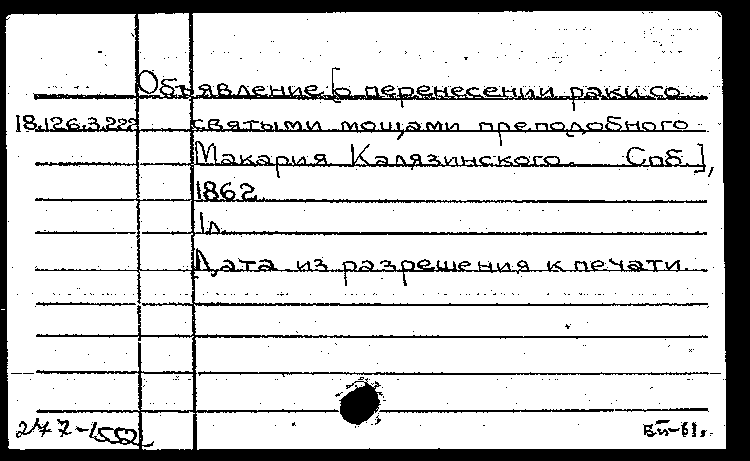 Объявление [о перенесении раки со
18.126.3.222 святыми мощами преподобного
Макария Калязинского. Спб.],
1862.
1л.
Дата из разрешения к печати.
247-1552 Бп-61г.